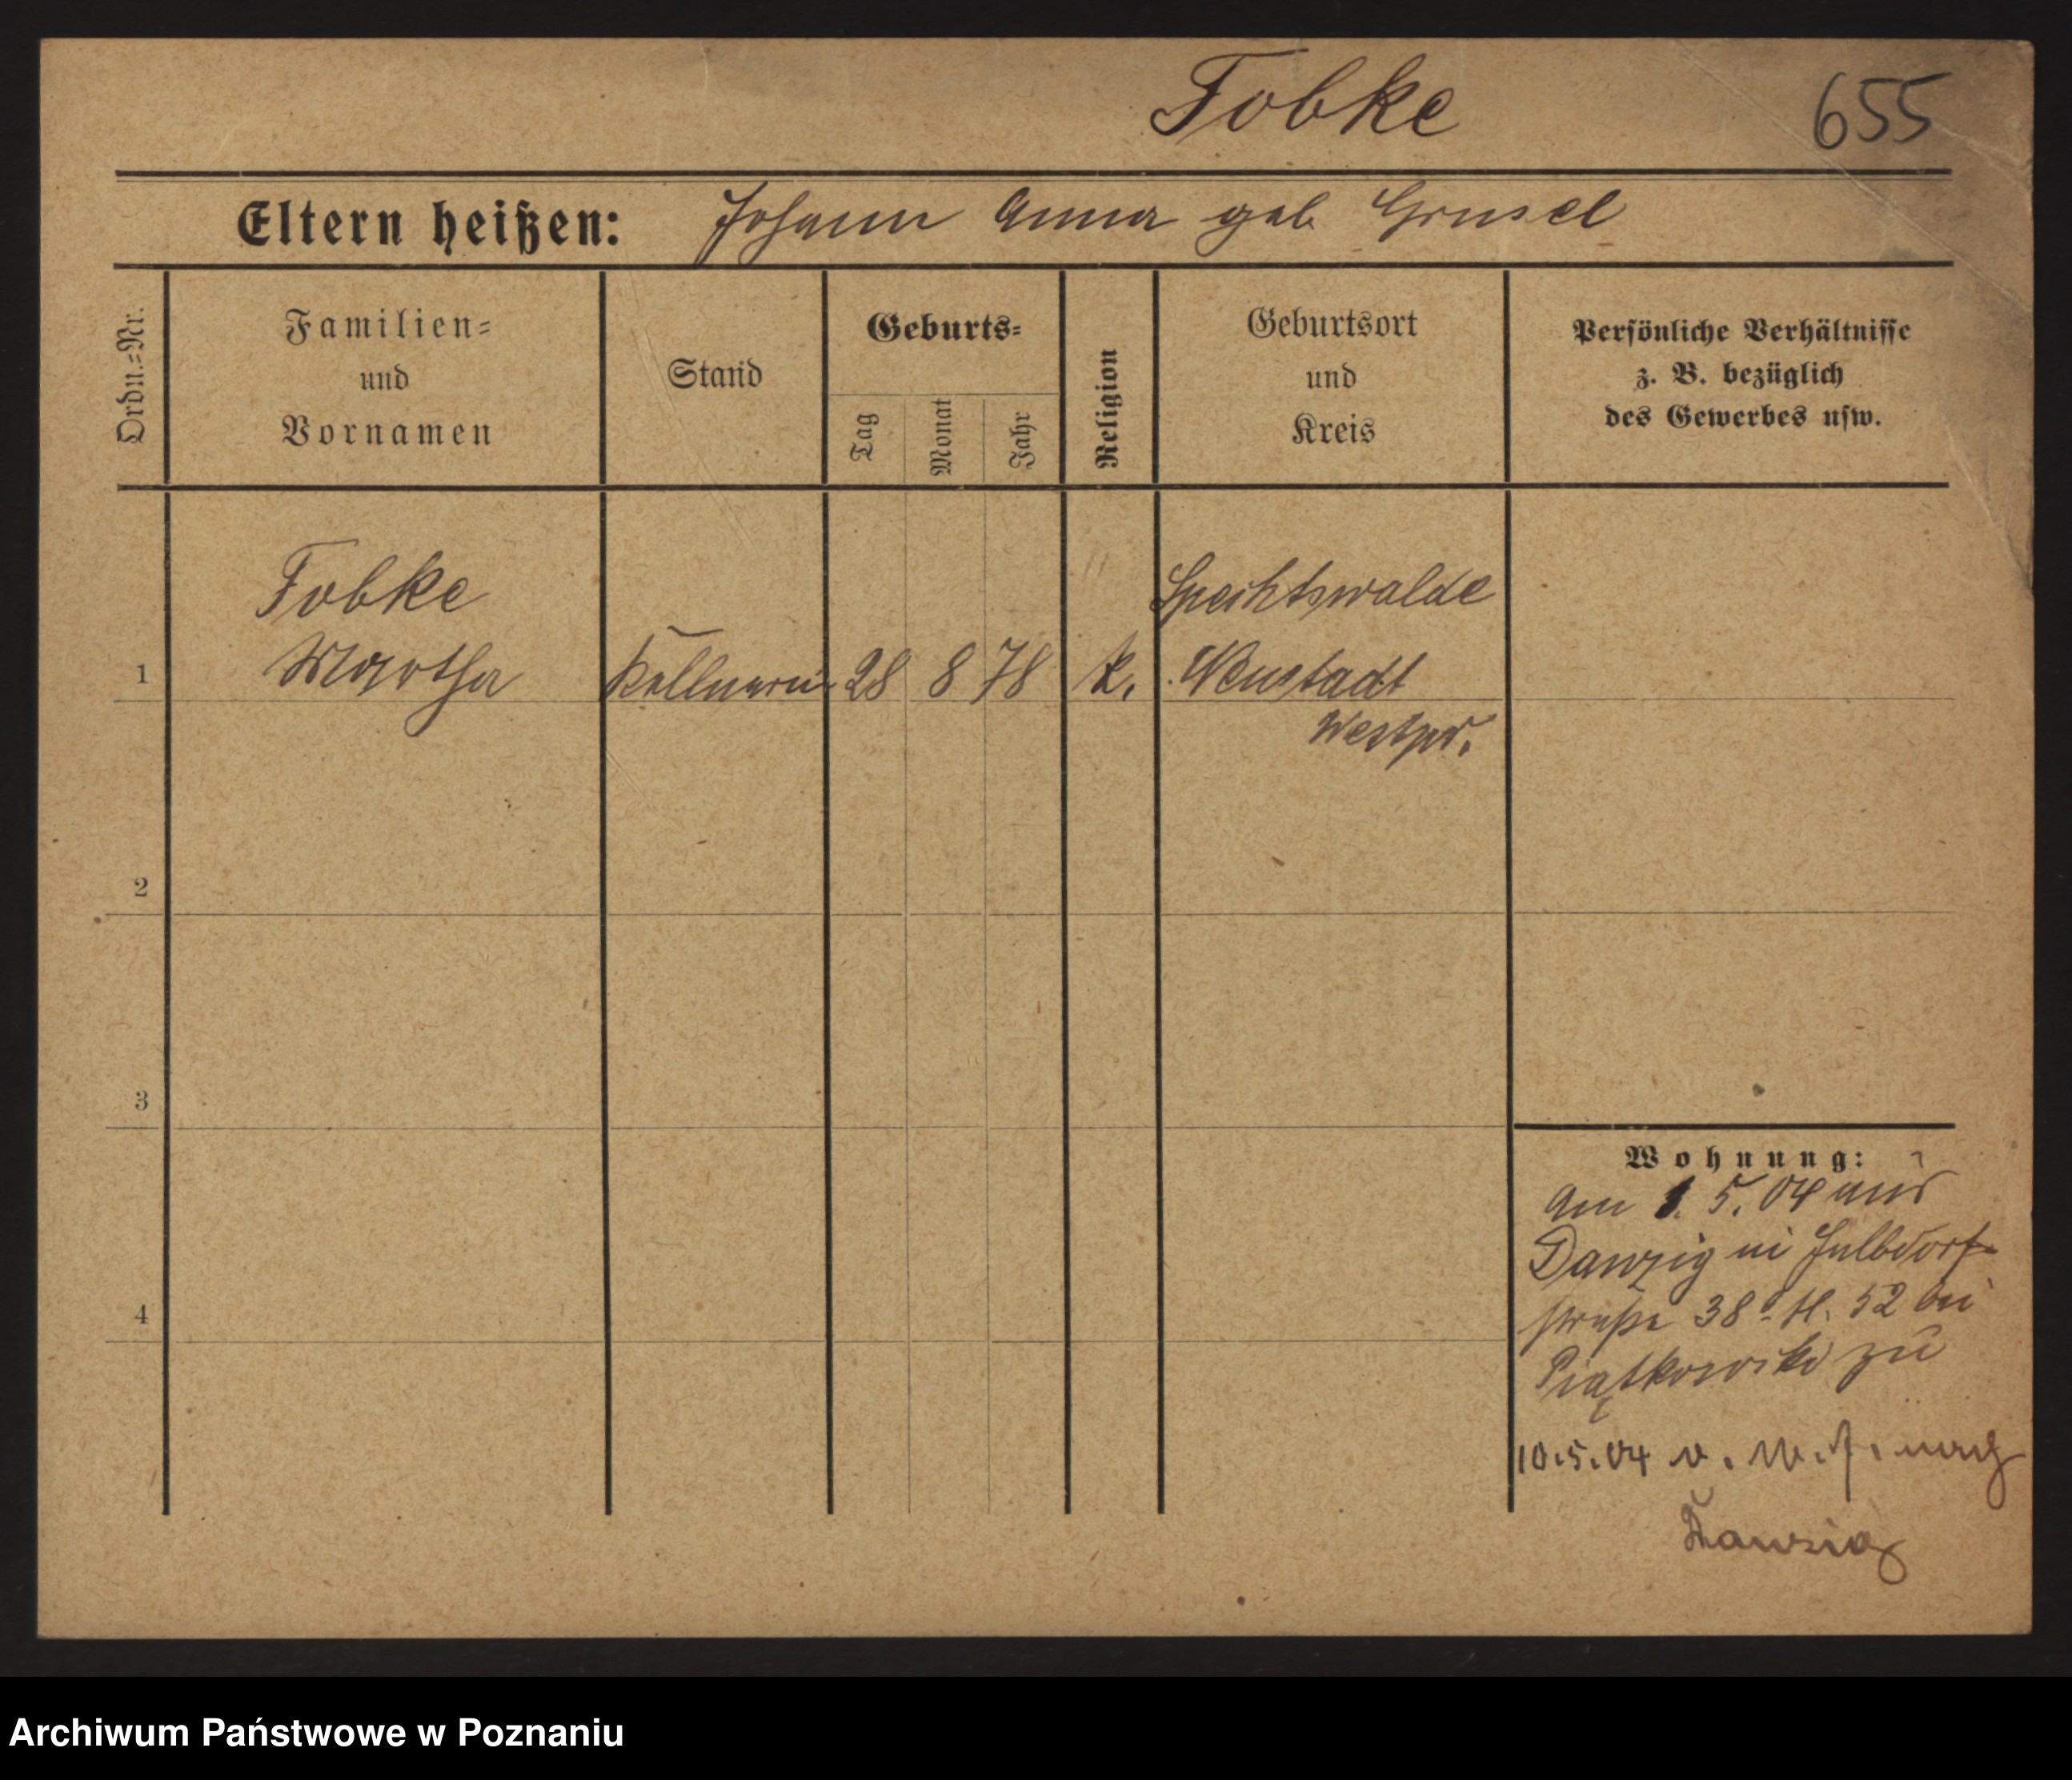 Fobke 655
Eltern heißen: Johann Anna geb. Grusel
Ordn.=Nr.
Familien=
und
Vornamen
Stand
Geburts=
Tag
Monat
Jahr
Religion
Geburtsort
und
Kreis
Persönliche Verhältnisse
z. B. bezüglich
des Gewerbes usw.
Fobke
Martha
1
Kellnerin
28 8 78
k.
Spechtswalde
Neustadt
Westpr.
2
3
4
Wohnung:
am 1. 5. 04 aus
Danzig in
straße 38 52 bei
Piątkowski zu
10.5.04 v. nach
Danzig
Archiwum Państwowe w Poznaniu